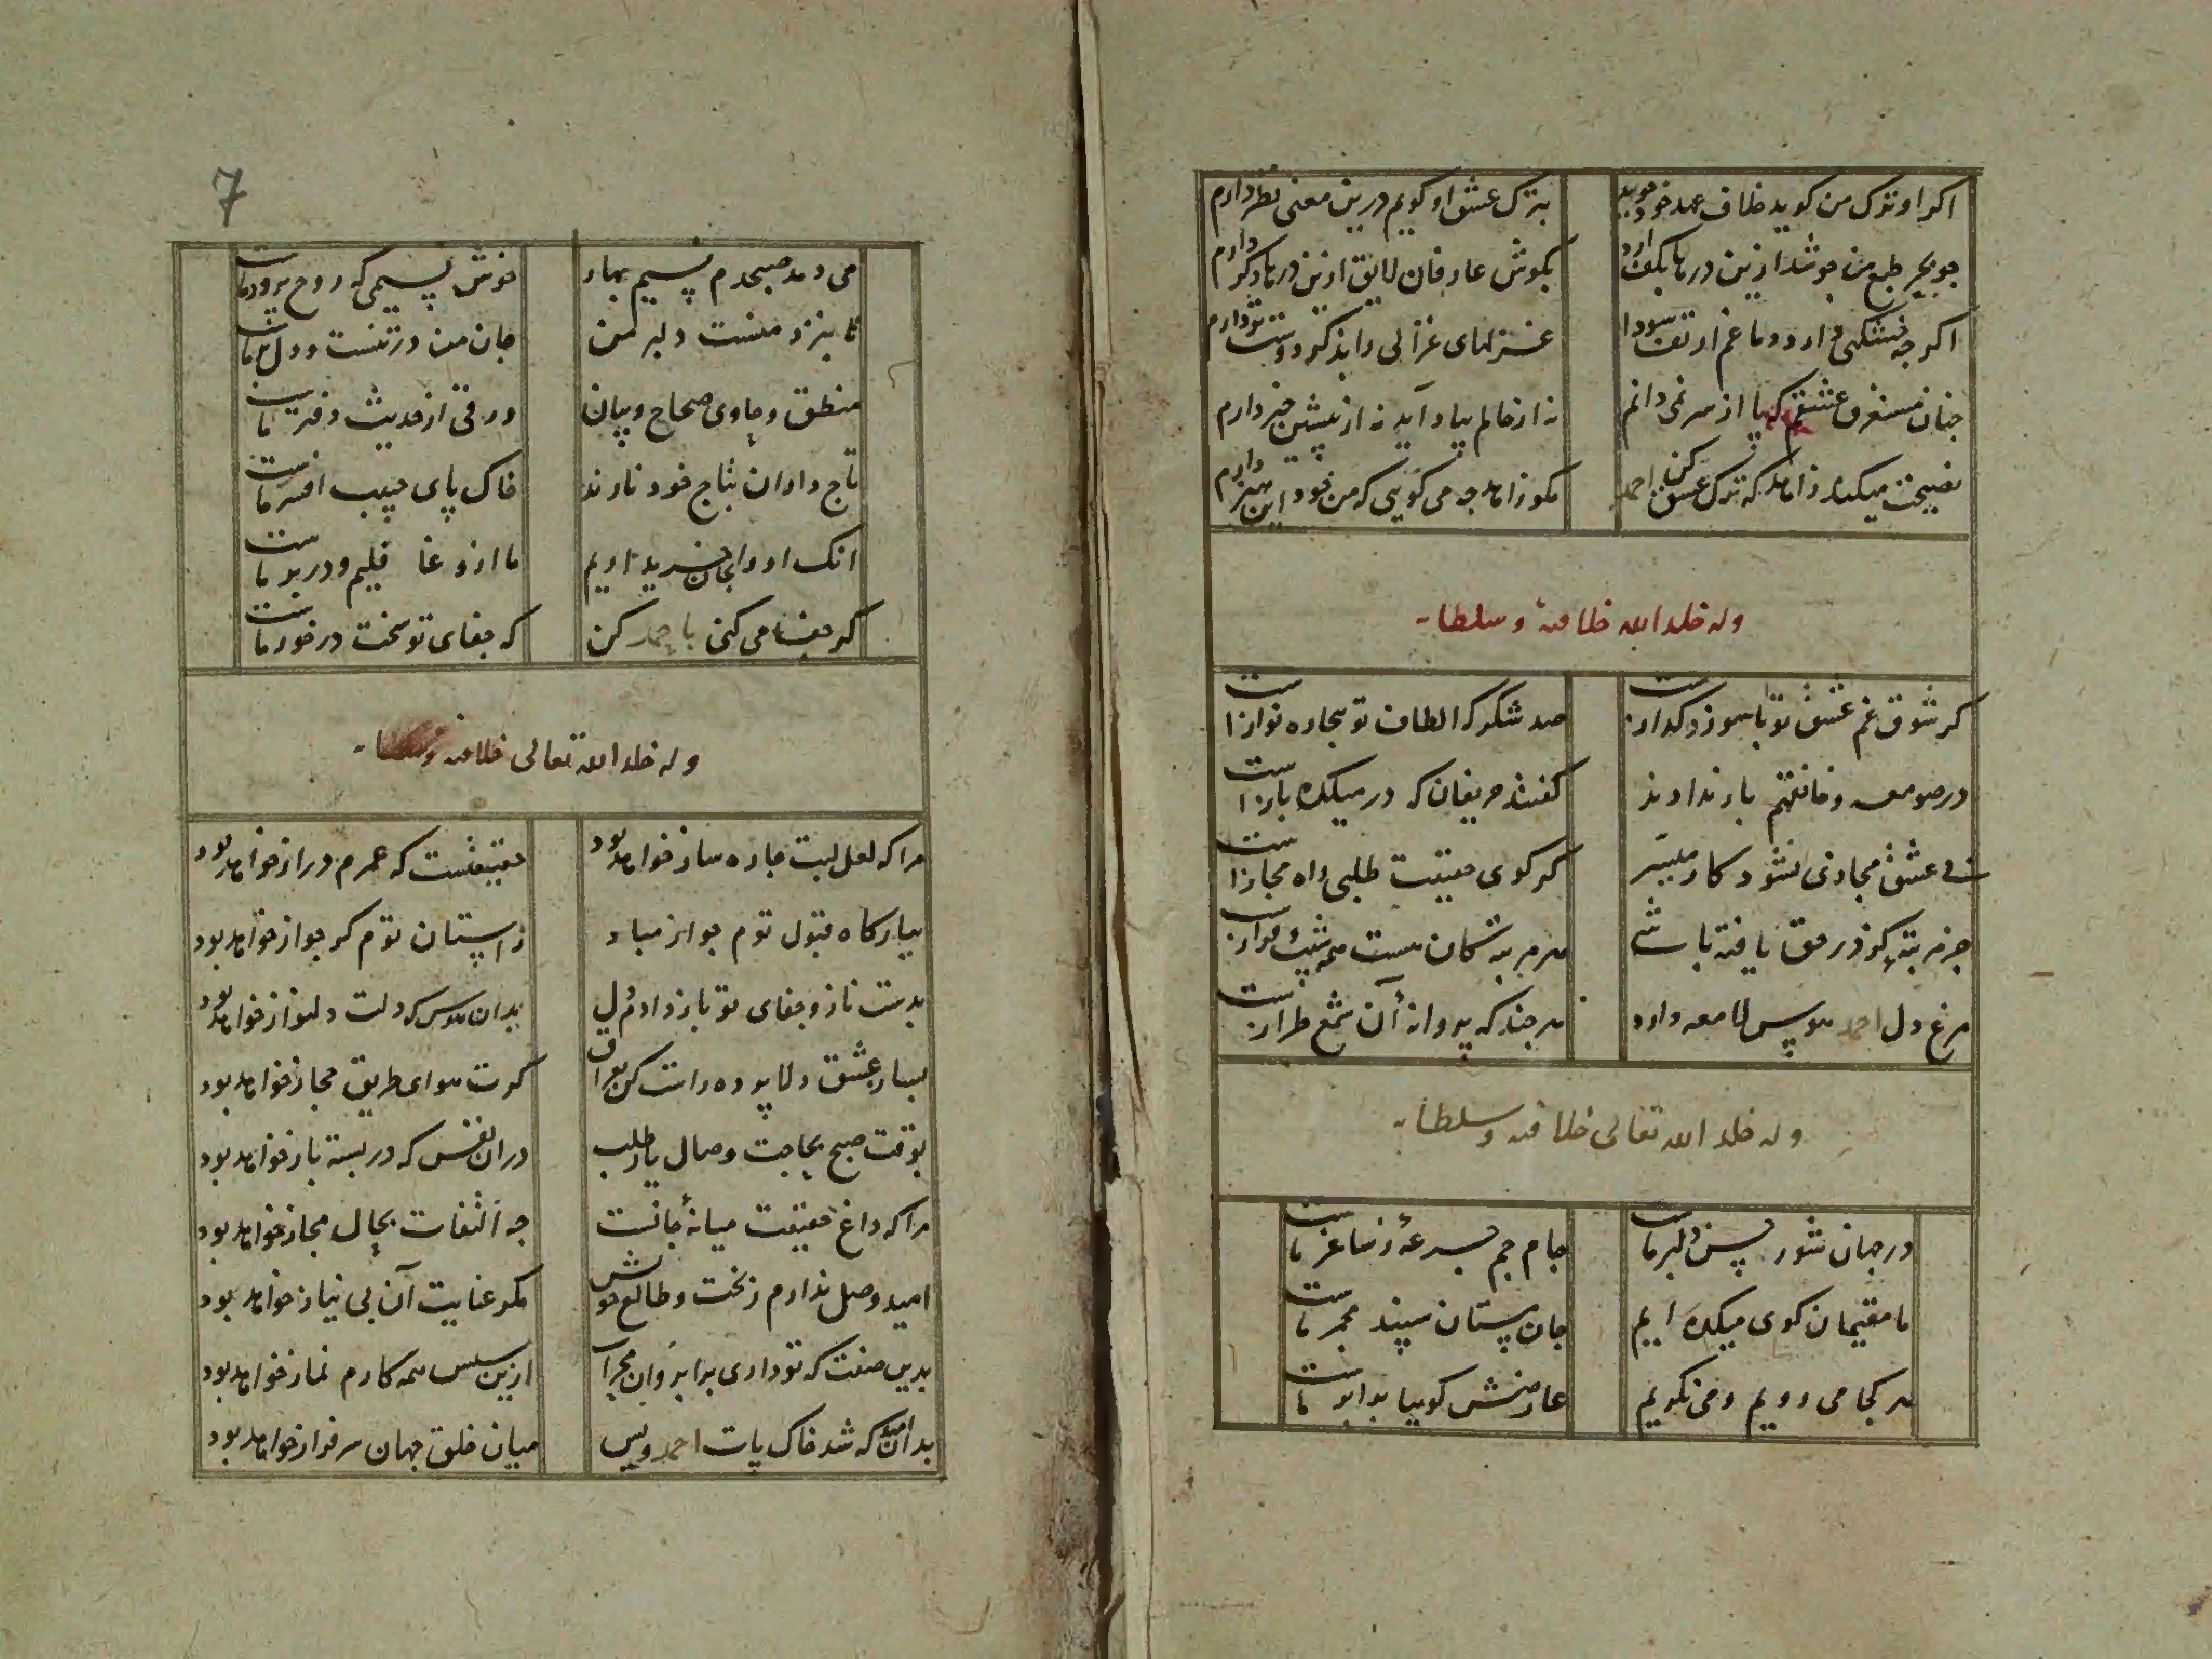 اکر او ترک من کوید خلاف عهد خود جوید بترک عشق او کویم درین معنی نظر دارم
جو بحر طبع من جوشد ازین درها بکف ارد بکوش عارفان لایق ازین درها دکر دارم
اکرجه خشکی دارد دماغم از تف سودا غزلهای غزالی را بذکر دوست تر دارم
جنان مستغرق عشقم که پا از سر نمی دانم نه از خالم بیاد آید نه از پیشین خبر دارم
نصیحت میکند زاهد که ترک عشق کن احمد مکو زاهد جه می کویی که من خود این هنر دارم
وله خلد الله خلافته وسلطانه
کر شوق غم عشق تو با سوز و کدازست صد شکر که الطاف تو بیجاره نوازست
در صومعه و خانقهم بار ندادند کفتند حریفان که در میکده بازست
بی عشق مجازی نشود کار میسر کر کوی حقیقت طلبی راه مجازست
جز مرتبه کوز در حق یافته باشی هر مرتبه کان هست همه شیب و فرازست
مرغ دل احمد هوس لامعه دارد هر جند که پروانه آن شمع طرازست
وله خلد الله تعالی خلافته وسلطانه
در جهان شور حسن دلبر ماست جام جم جرعهٔ ز ساغر ماست
ما مقیمان کوی میکده ایم جان مستان سپند مجمر ماست
هر کجا می رویم و می نکریم عارضش کوییا برابر ماست
7
می دمد صبحدم نسیم بهار خوش نسیمی که روح پرور ماست
تا بنزد منست دلبر من جان من در تنست و دل بر ماست
منطق و حاوی صحاح و بیان ورقی از حدیث دفتر ماست
تاج داران بتاج خود نازند خاک پای حبیب افسر ماست
انک او را بجان خریداریم ما ازو غافلیم و در بر ماست
کر جفا می کنی با احمد کن که جفای تو سخت در خور ماست
وله خلد الله تعالی خلافته وسلطانه
مرا که لعل لبت جاره ساز خواهد بود حقیقتست که عمرم دراز خواهد بود
ببارکاه قبول توم جواز مباد ز استان توم کر جواز خواهد بود
بدست ناز و جفای تو باز دادم دل بدان هوس که دلت دلنواز خواهد بود
بساز عشق دلا پرده راست کن بعراق کرت هوای طریق مجاز خواهد بود
بوقت صبح بحاجت وصال یار طلب دران نفس که در بسته باز خواهد بود
مرا که داغ حقیقت میانهٔ جانست جه التفات بحال مجاز خواهد بود
امید وصل ندارم ز بخت و طالع خویش مکر عنایت آن بی نیاز خواهد بود
بدین صفت که تو داری برابروان محراب ازین سپس همه کارم نماز خواهد بود
بدان امید که شد خاک پات احمد ویس میان خلق جهان سرفراز خواهد بود